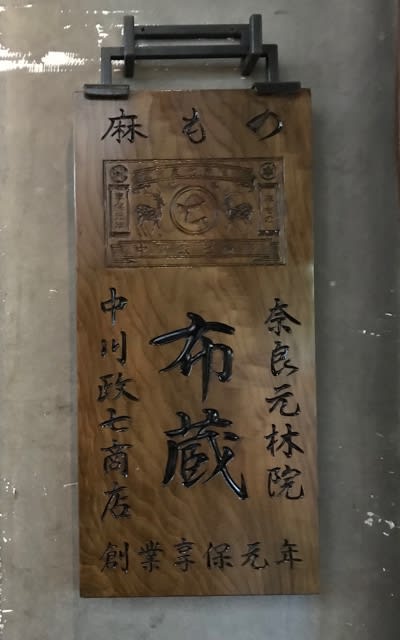 麻もの
七
奈良元林院
布蔵
中川政七商店
創業享保元年